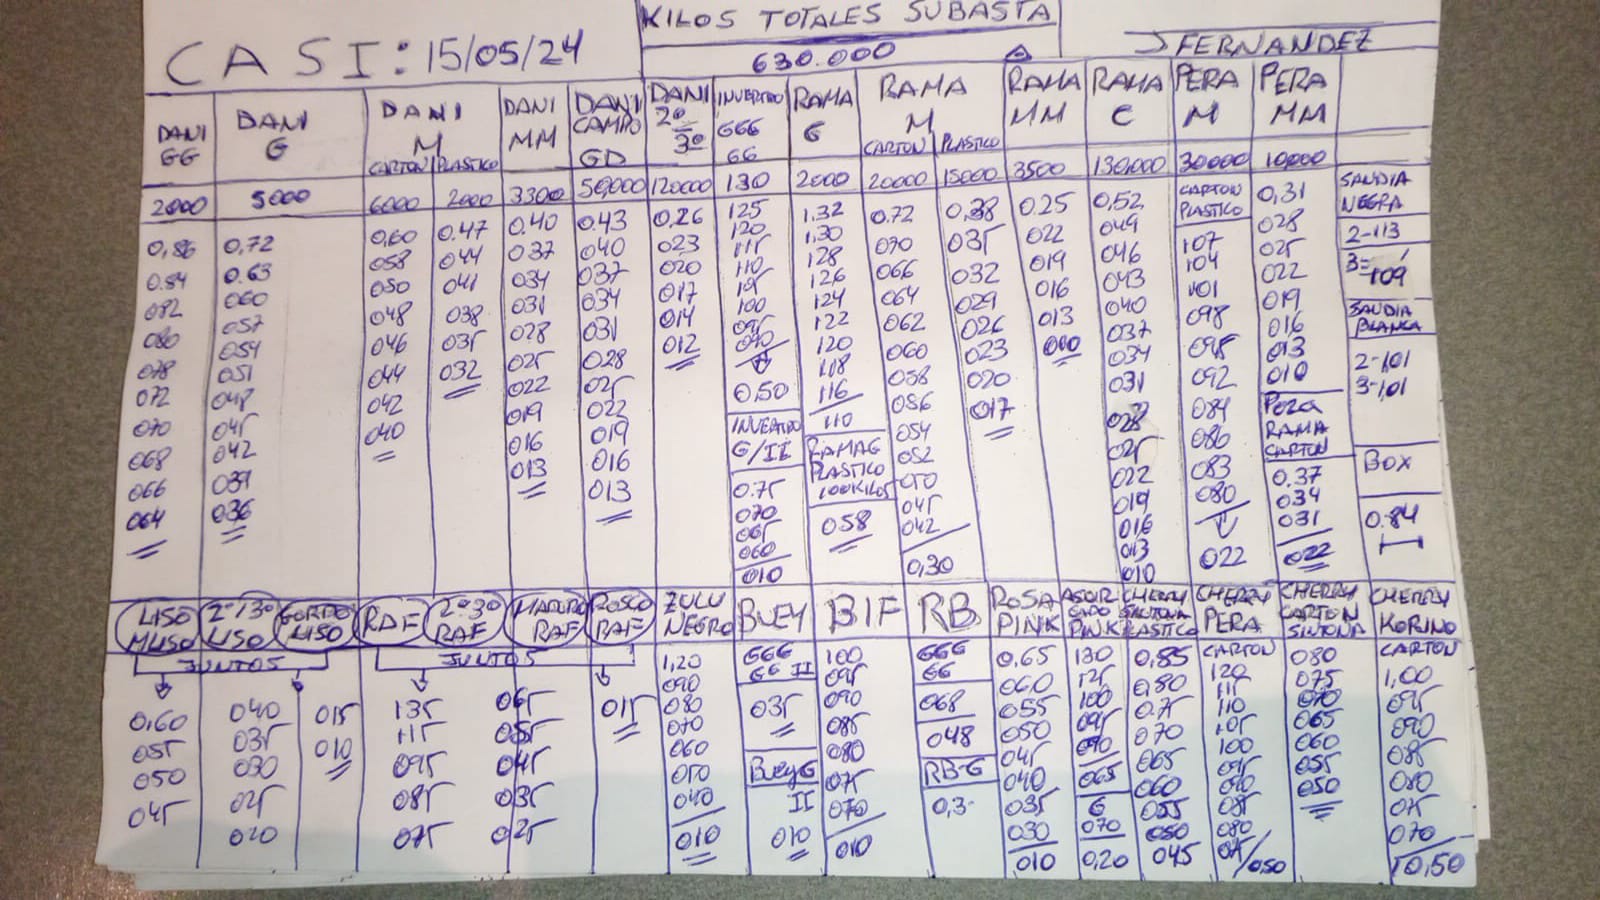 KILOS TOTALES SUBASTA
CASI: 15/05/24
630.000
J FERNANDEZ
DANI GG
2000
0,86
0.84
082
080
078
072
070
068
066
064
DANI G
5000
0,72
0.63
060
057
054
051
048
045
042
039
036
DANI M
CARTON
6000
0,60
058
050
048
046
044
042
040
PLASTICO
2000
0.47
044
041
038
035
032
DANI MM
3300
0.40
037
034
031
028
025
022
019
016
013
DANI CAMPO GD
50,000
0.43
040
037
034
031
028
025
022
019
016
013
DANI 2º 3º
120000
0,26
023
020
017
014
012
INVERTIDO GGG GG
130
125
120
115
110
105
100
095
090
0,50
INVERTIDO G/II
0.75
070
065
060
010
RAMA G
2000
1,32
1,30
128
126
124
122
120
118
116
110
RAMA G
PLASTICO
100 KILOS
058
RAMA M
CARTON
20000
0.72
070
066
064
062
060
058
056
054
052
050
045
042
0,30
PLASTICO
15000
0,38
035
032
029
026
023
020
017
RAMA MM
3500
0.25
022
019
016
013
RAMA C
130,000
0,52
049
046
043
040
037
034
031
028
025
022
019
016
013
010
PERA M
30000
CARTON
PLASTICO
107
104
101
098
095
092
084
086
083
080
022
PERA MM
10,000
0,31
028
025
022
019
016
013
010
PERA
RAMA
CARTON
0.37
034
031
022
SANDIA
NEGRA
2-113
3=109
SANDIA
BLANCA
2-101
3-101
BOX
0.84
LISO
MLISO
2º 3º
LISO
GORDO
LISO
JUNTOS
0,60
055
050
045
040
035
030
025
020
015
010
RAF
2º 3º
RAF
MADURO
RAF
ROSCO
RAF
JUNTOS
135
115
095
085
075
065
055
045
035
025
015
ZULU
NEGRO
1,20
090
080
070
060
050
040
010
BUEY
GGG
GG II
035
BUEY G
II
010
BIF
100
095
090
085
080
075
070
010
RB
GGG
GG
068
048
RB-G
0,3-
ROSA
PINK
0,65
060
055
050
045
040
035
030
010
PINK
130
125
100
095
090
065
G
070
0,20
CHERRY
SINTONA
PLASTICO
0,85
0,80
0.75
070
065
060
055
050
045
CHERRY
PERA
CARTON
120
115
110
105
100
095
090
085
080
075/050
CHERRY
CARTON
SINTONA
080
075
070
065
060
055
050
CHERRY
KORINO
CARTON
1,00
095
090
085
080
075
070
0,50